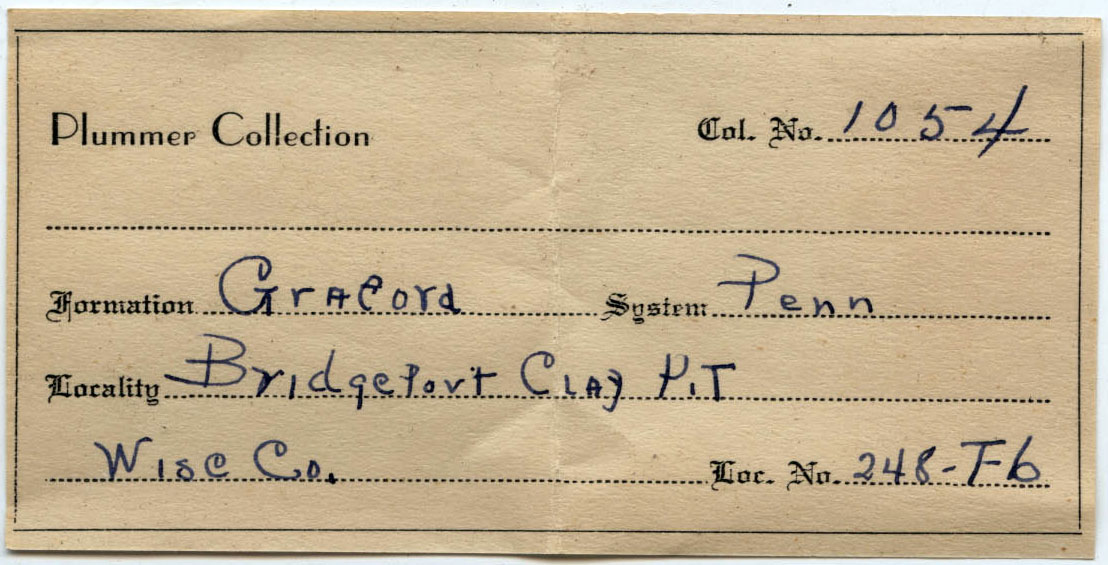 Plummer Collection Col. No. 1054
Formation Graford System Penn
Locality Bridgeport Clay Pit
Wise Co. Loc. No. 248-T-6